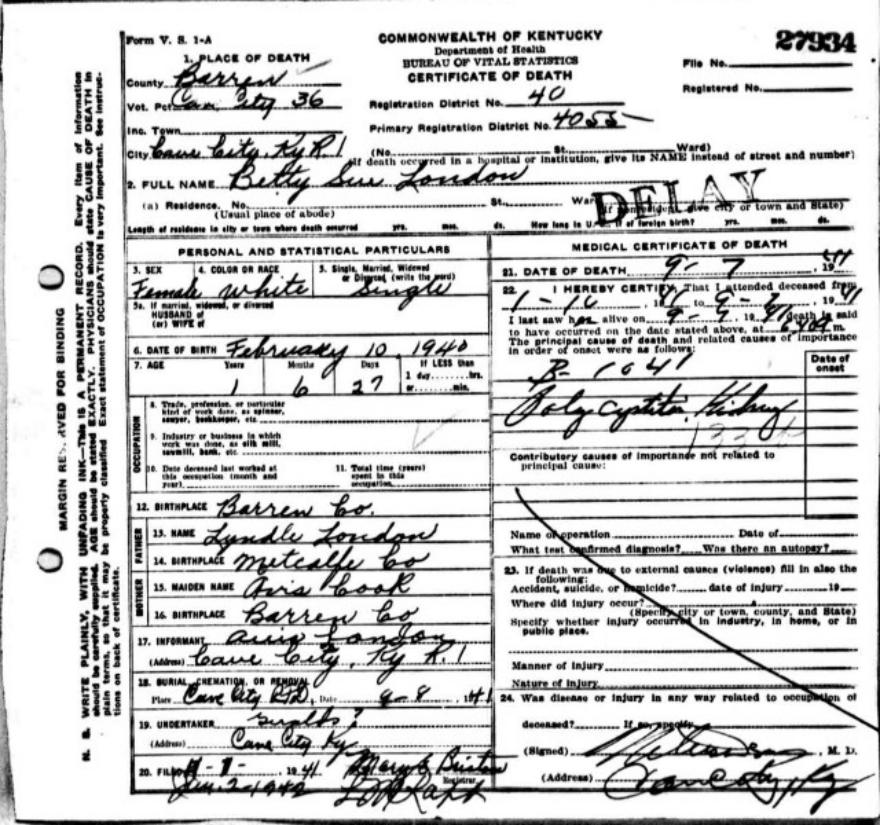 Form V. S. 1-A
COMMONWEALTH OF KENTUCKY
Department of Health
BUREAU OF VITAL STATISTICS
CERTIFICATE OF DEATH
27934
File No.
Registered No.
1. PLACE OF DEATH
County Barren
Vot. Pct. Cave City 36
Registration District No. 40
Inc. Town
Primary Registration District No. 4055
City Cave City, Ky R. 1 (No. St. Ward)
(If death occurred in a hospital or institution, give its NAME instead of street and number)
2. FULL NAME Betty Sue London
DELAY
(a) Residence. No. St., Ward
(Usual place of abode) (If nonresident give city or town and State)
Length of residence in city or town where death occurred yrs. mos. ds. How long in U. S., if of foreign birth? yrs. mos. ds.
PERSONAL AND STATISTICAL PARTICULARS
3. SEX 4. COLOR OR RACE 5. Single, Married, Widowed or Divorced (write the word)
Female White Single
5a. If married, widowed, or divorced
HUSBAND of
(or) WIFE of
6. DATE OF BIRTH February 10, 1940
7. AGE Years Months Days If LESS than
1 day hrs.
1 6 27 or min.
OCCUPATION
8. Trade, profession, or particular
kind of work done, as spinner,
sawyer, bookkeeper, etc.
9. Industry or business in which
work was done, as silk mill,
sawmill, bank, etc.
10. Date deceased last worked at
this occupation (month and
year)
11. Total time (years)
spent in this
occupation
12. BIRTHPLACE Barren Co.
FATHER
13. NAME Lyndle London
14. BIRTHPLACE Metcalfe Co
MOTHER
15. MAIDEN NAME Avis Cook
16. BIRTHPLACE Barren Co
17. INFORMANT Avis London
(Address) Cave City, Ky R. 1
18. BURIAL, CREMATION, OR REMOVAL
Place Cave City Date 9-8 1941
19. UNDERTAKER
(Address) Cave City Ky
20. FILED 1941 Mary Registrar
Jan. 2-1942
MEDICAL CERTIFICATE OF DEATH
21. DATE OF DEATH 9-7 1941
22. I HEREBY CERTIFY, That I attended deceased from
to 1941
I last saw her alive on 1941 death is said
to have occurred on the date stated above, at m.
The principal cause of death and related causes of importance
in order of onset were as follows:
Date of
onset
Kidney
Contributory causes of importance not related to
principal cause:
Name of operation Date of
What test confirmed diagnosis? Was there an autopsy?
23. If death was due to external causes (violence) fill in also the
following:
Accident, suicide, or homicide? date of injury 19
Where did injury occur?
(Specify city or town, county, and State)
Specify whether injury occurred in industry, in home, or in
public place.
Manner of injury
Nature of injury
24. Was disease or injury in any way related to occupation of
deceased? If so, specify
(Signed) , M. D.
(Address) Cave City, Ky
MARGIN RESERVED FOR BINDING
N. B. WRITE PLAINLY, WITH UNFADING INK—This IS A PERMANENT RECORD. Every item of information
should be carefully supplied. AGE should be stated EXACTLY. PHYSICIANS should state CAUSE OF DEATH in
plain terms, so that it may be properly classified. Exact statement of OCCUPATION is very important. See instruc-
tions on back of certificate.